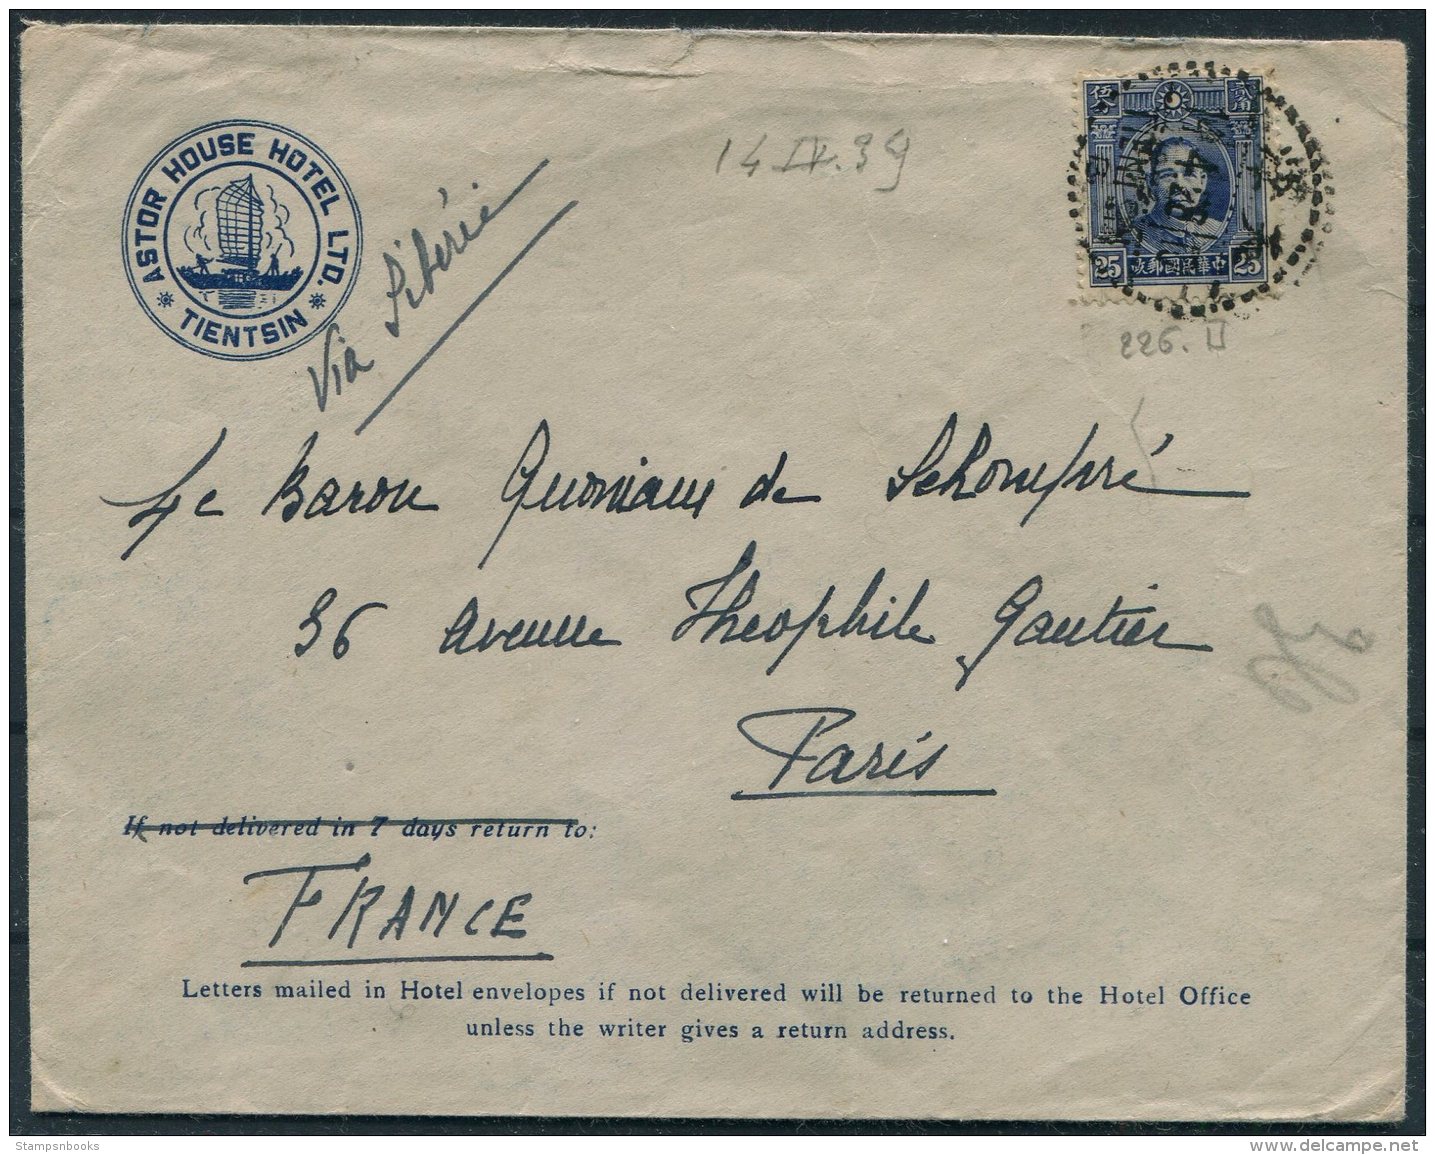 ASTOR HOUSE HOTEL LTD.
TIENTSIN
Via Sibérie
14 IV. 39
貳角 伍分
25 中華民國郵政 25
226. II
Le Baron Quoniaux de Schompré
36 Avenue Théophile Gautier
Paris
If not delivered in 7 days return to:
FRANCE
Letters mailed in Hotel envelopes if not delivered will be returned to the Hotel Office
unless the writer gives a return address.
Stampsnbooks
delcampe.net